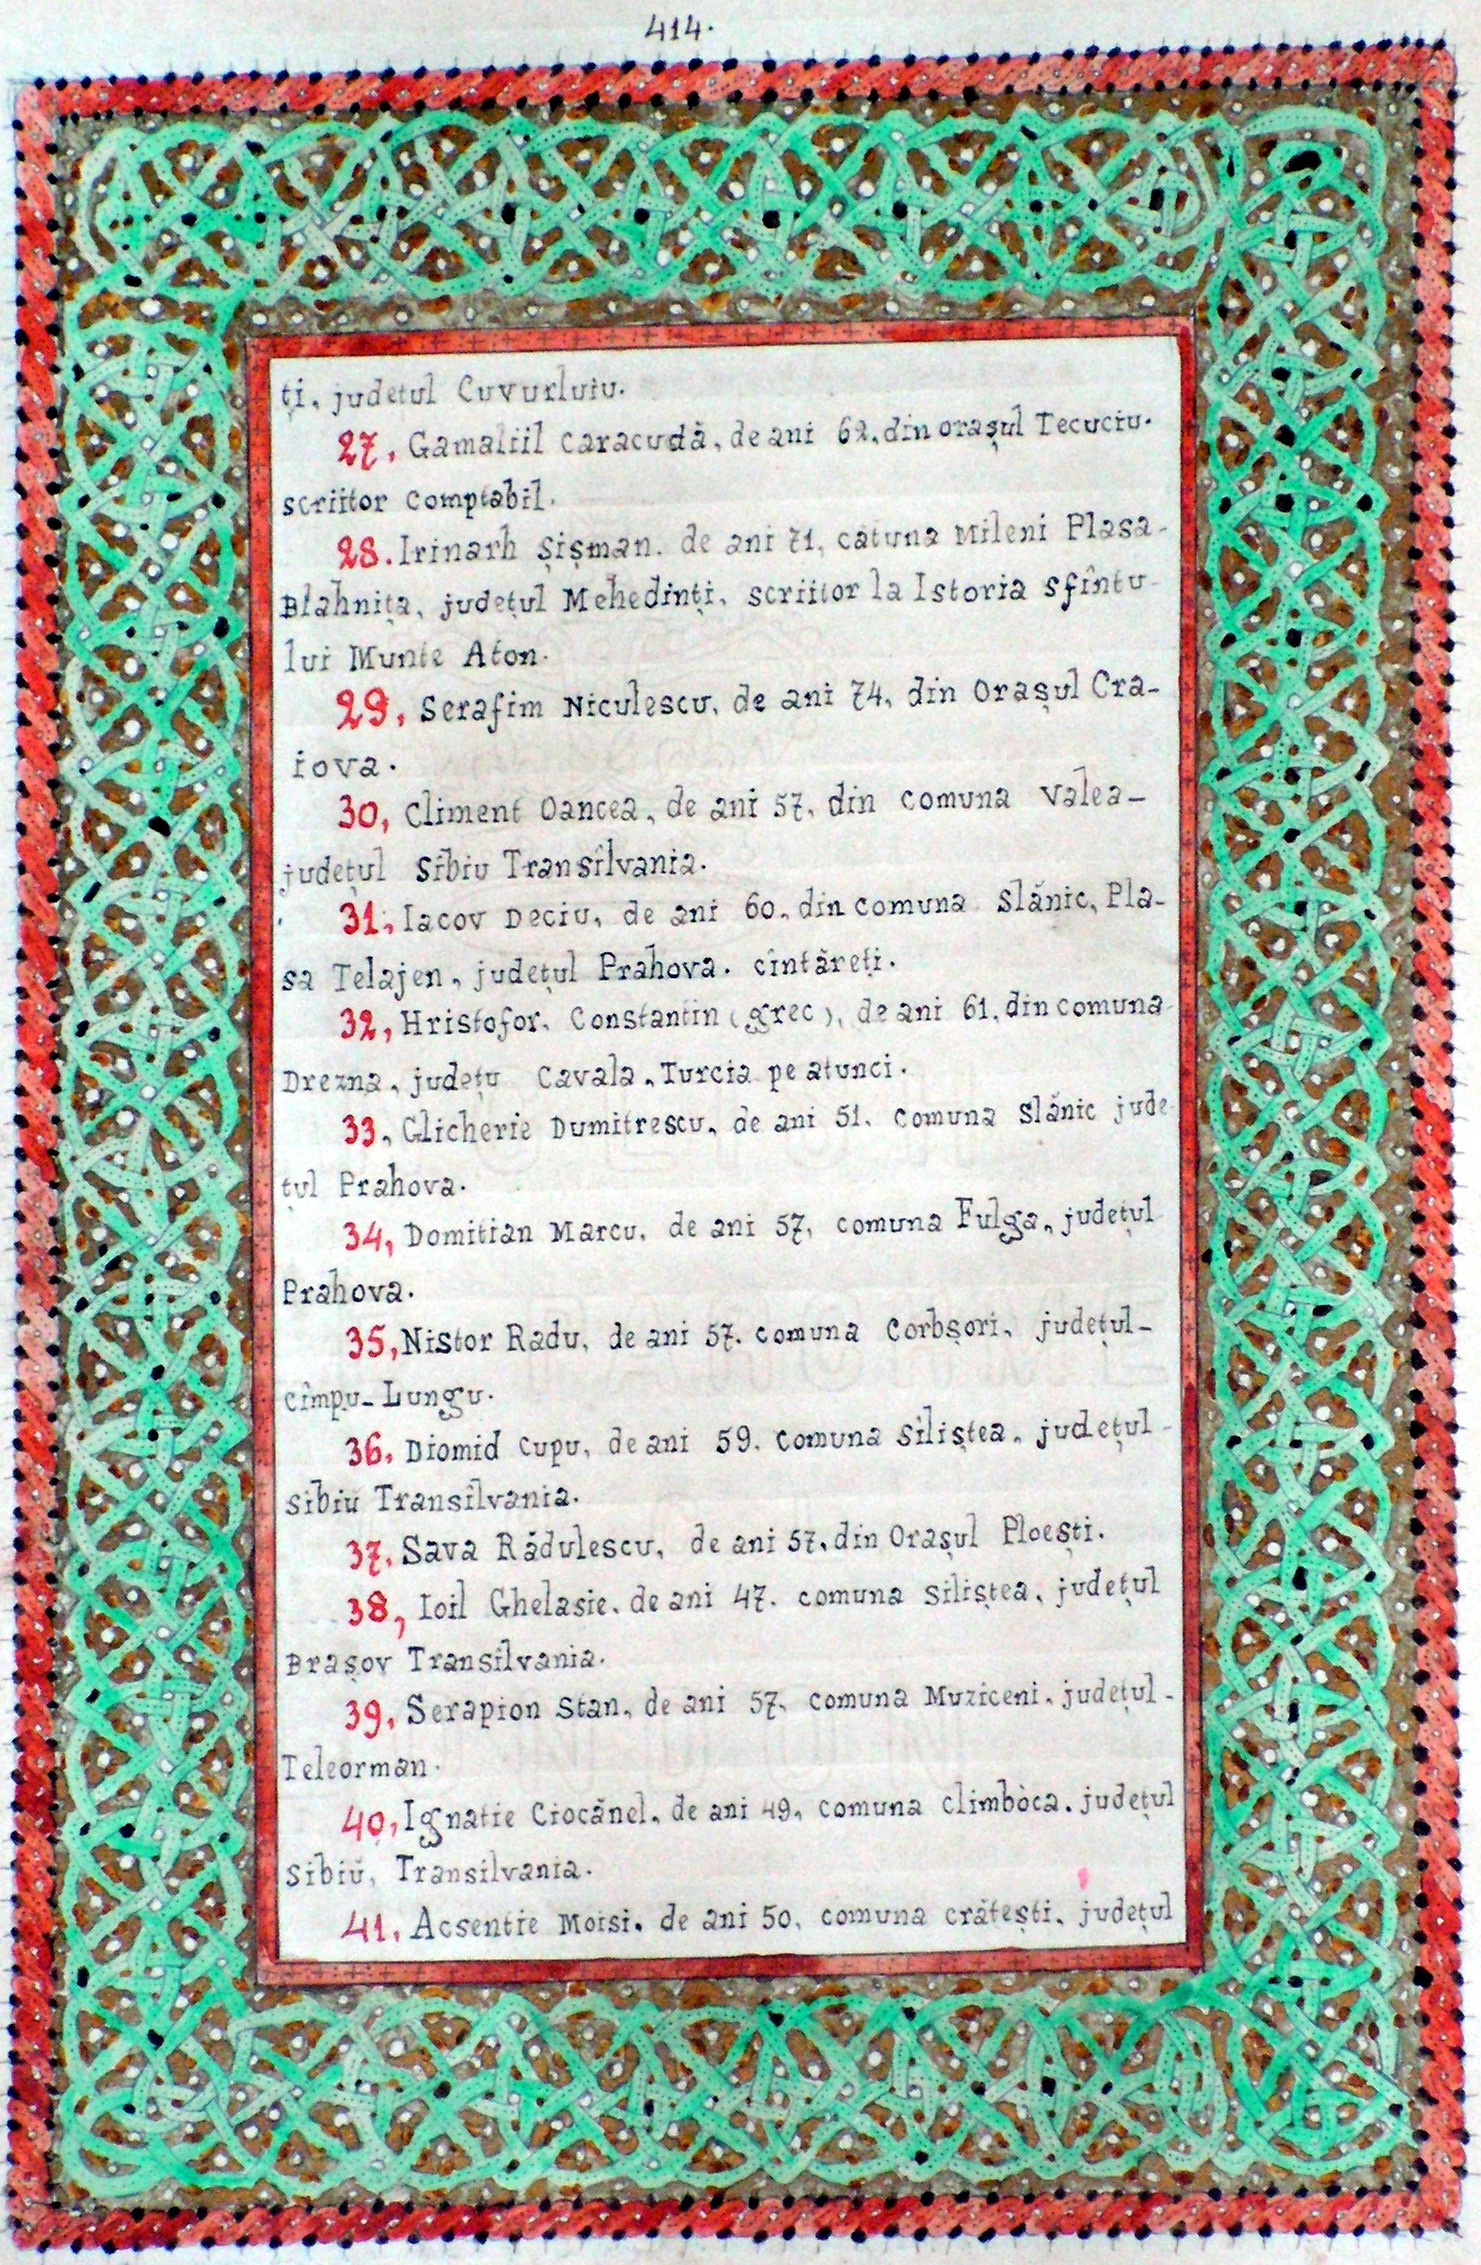 414.
ți, județul Cuvurluiu.
27, Gamaliil Caracudă, de ani 62, din orașul Tecuciu.
scriitor comptabil.
28. Irinarh Șișman. de ani 71, cătuna Mileni Plasa-
Blahnița, județul Mehedinți, scriitor la Istoria sfîntu-
lui Munte Aton.
29, Serafim Niculescu, de ani 74, din Orașul Cra-
iova.
30, Climent Oancea, de ani 57, din comuna Valea-
județul Sibiu Transilvania.
31, Iacov Deciu, de ani 60, din comuna Slănic, Pla-
sa Telajen, județul Prahova. cîntăreți.
32, Hristofor, Constantin (grec), de ani 61, din comuna
Drezna, județu Cavala, Turcia pe atunci.
33, Glicherie Dumitrescu, de ani 51, comuna Slănic jude
țul Prahova.
34, Domitian Marcu, de ani 57, comuna Fulga, județul
Prahova.
35, Nistor Radu, de ani 57. comuna Corbșori, județul-
cîmpu-Lungu.
36, Diomid Cupu, de ani 59. comuna Siliștea, județul-
Sibiu Transilvania.
37, Sava Rădulescu, de ani 57, din Orașul Ploești.
38, Ioil Ghelasie, de ani 47. comuna Siliștea, județul
Brașov Transilvania.
39, Serapion Stan, de ani 57, comuna Muziceni, județul-
Teleorman.
40, Ignatie Ciocănel, de ani 49, comuna climbòca. județul
Sibiu, Transilvania.
41, Acsentie Moisi, de ani 50, comuna crătești, județul